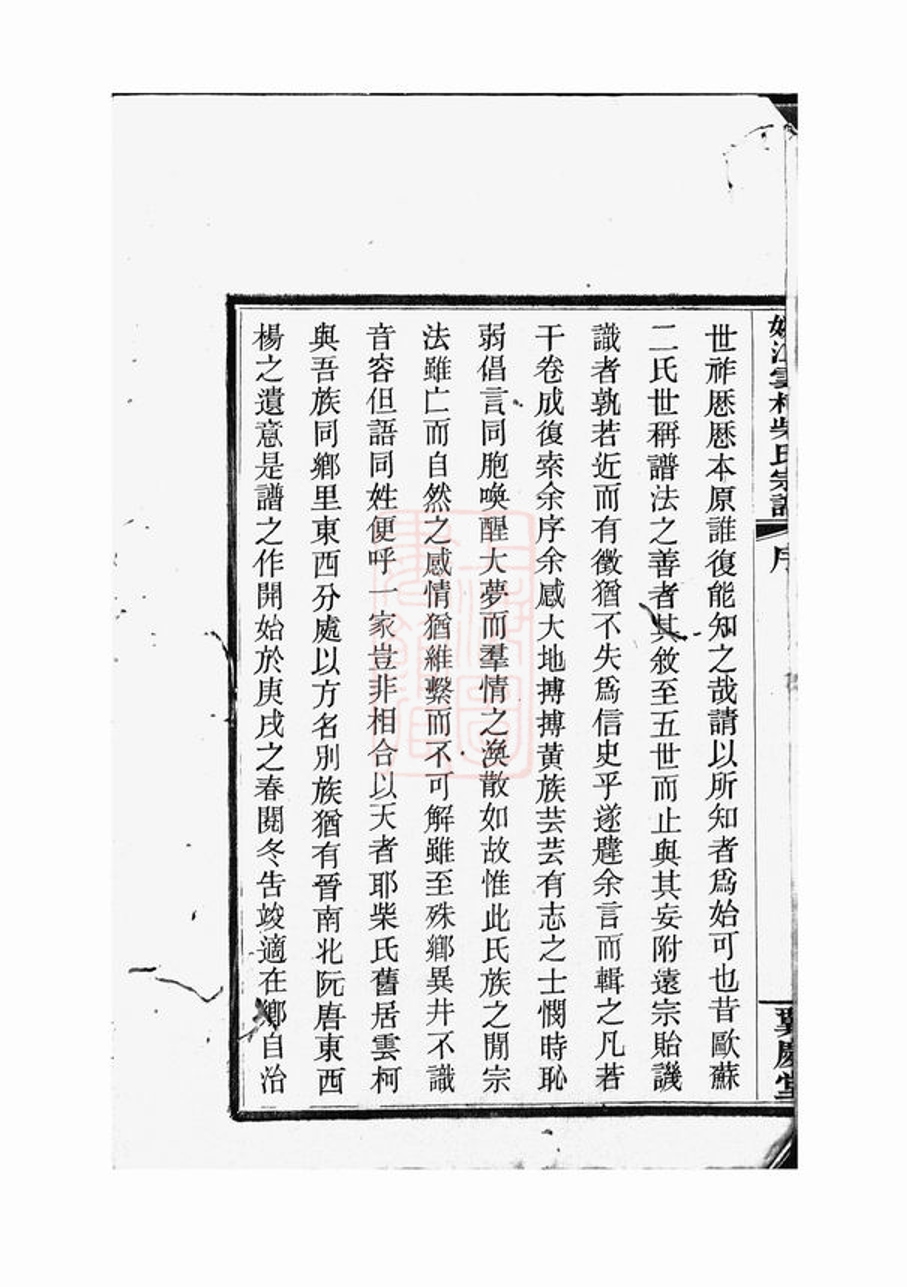 世祚厯厯本原誰復能知之哉請以所知者爲始可也昔歐蘇
二氏世稱譜法之善者其敘至五世而止與其妄附遠宗貽譏
識者孰若近而有徵猶不失爲信史乎遂韙余言而輯之凡若
干卷成復索余序余感大地搏搏黃族芸芸有志之士憫時恥
弱倡言同胞喚醒大夢而羣情之渙散如故惟此氏族之閒宗
法雖亡而自然之感情猶維繫而不可解雖至殊鄉異井不識
音容但語同姓便呼一家豈非相合以天者耶柴氏舊居雲柯
與吾族同鄉里東西分處以方名別族猶有晉南北阮唐東西
楊之遺意是譜之作開始於庚戌之春閱冬告竣適在鄉自治
姚江雲柯柴氏宗譜
序
慶堂